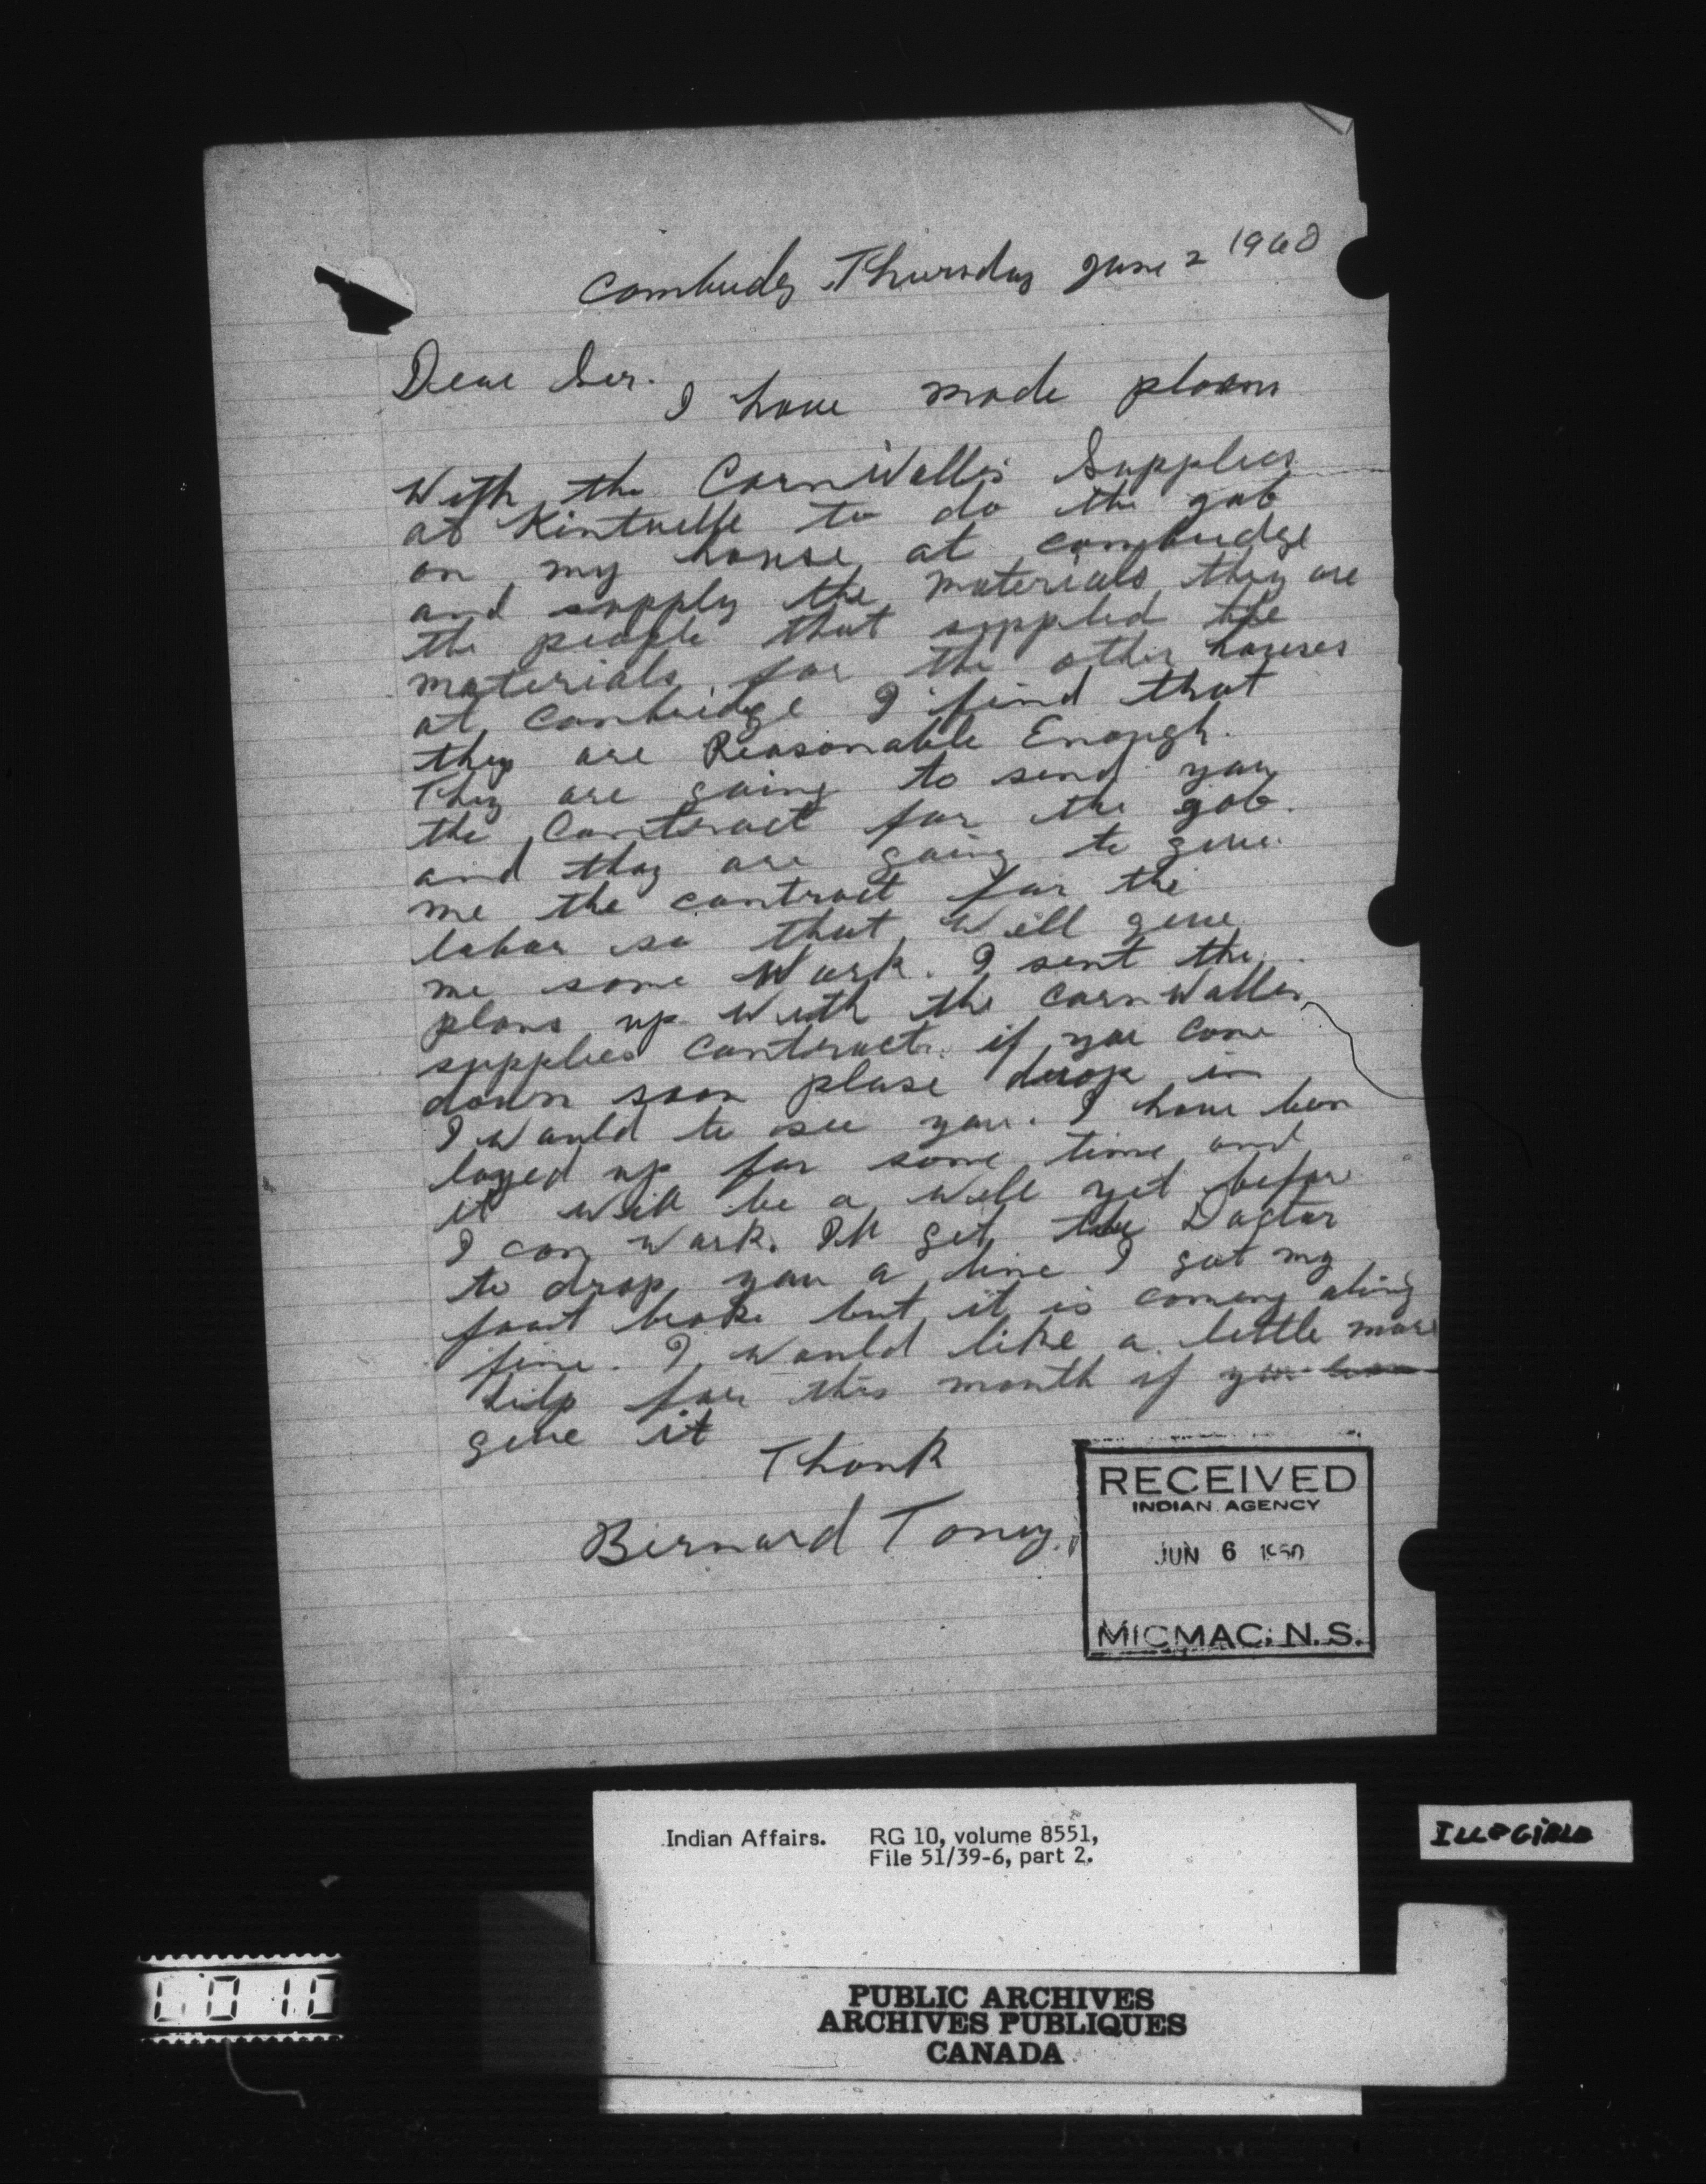 Cambridg Thursday June 2 1960
Dear Sir.
I have made plans
With the CornWallis Supplies
at Kintville to do the gob
on my house at cambridge
and supply the materials they are
the people that sppplied the
materials for the other houses
at Cambridge I find that
they are Reasonable Enough.
They are going to send you
the Contract for the gob.
and thay are going to give
me the contract for the
labor so that will give
me some Work. I sent the
plans up With the CornWallis
supplies contract. if you come
down soon pluse drop in
I Would to see you. I have ben
layed up for some time and
it will be a will yet befor
I can work. Ill get the Doctor
to drop you a line I got my
foot broke but it is coming along
fine. I would like a little more
help for this month if you
give it
Thank
Bernard Toney.
RECEIVED
INDIAN AGENCY
JUN 6 1960
MICMAC, N.S.
Indian Affairs. RG 10, volume 8551,
File 51/39-6, part 2.
ILLEGIBLE
PUBLIC ARCHIVES
ARCHIVES PUBLIQUES
CANADA